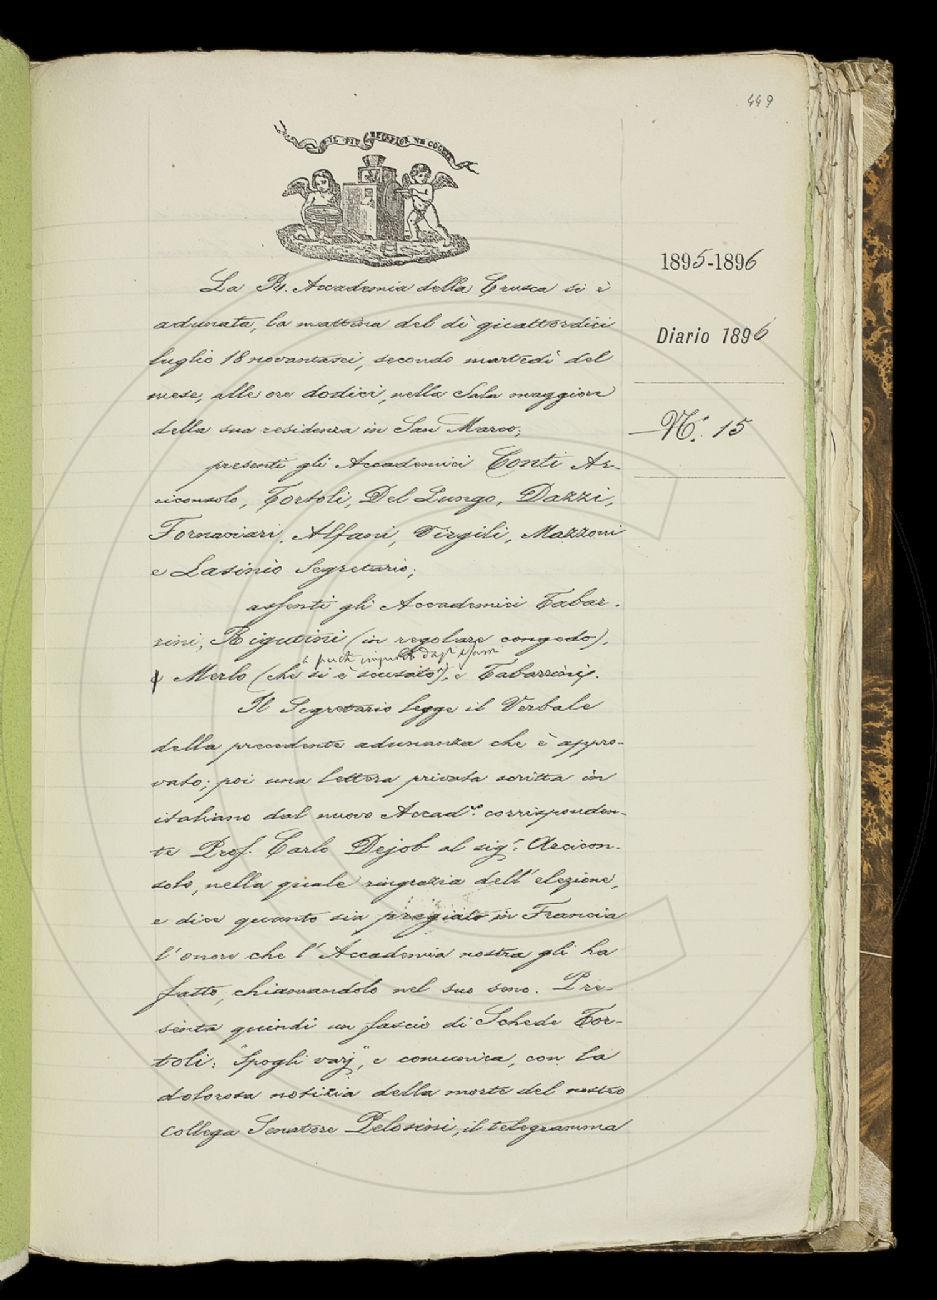 449
IL PIÙ BEL FIOR NE COGLIE
1895-1896
Diario 1896
N.° 15
La R. Accademia della Crusca si è
adunata, la mattina del dì quattordici
luglio 18novantasei, secondo martedì del
mese, alle ore dodici, nella Sala maggiore
della sua residenza in San Marco;
presenti gli Accademici Conti Ar-
ciconsolo, Tortoli, Del Lungo, Dazzi,
Fornaciari, Alfani, Virgili, Mazzoni
e Lasinio Segretario;
assenti gli Accademici Tabar-
rini, Rigutini (in regolare congedo),
è pure impedito dagli esami
e Merlo (che si è scusato), e Tabarrini.
Il Segretario legge il Verbale
della precedente adunanza che è appro-
vato; poi una lettera privata scritta in
italiano dal nuovo Accad.co corrisponden-
te Prof. Carlo Dejob al sig.r Arcicon-
solo, nella quale ringrazia dell'elezione,
e dice quanto sia pregiato in Francia
l'onore che l'Accademia nostra gli ha
fatto, chiamandolo nel suo seno. Pre-
senta quindi un fascio di Schede Tor-
toli: "Spogli varj", e comunica, con la
dolorosa notizia della morte del nostro
collega Senatore Pelosini, il telegramma